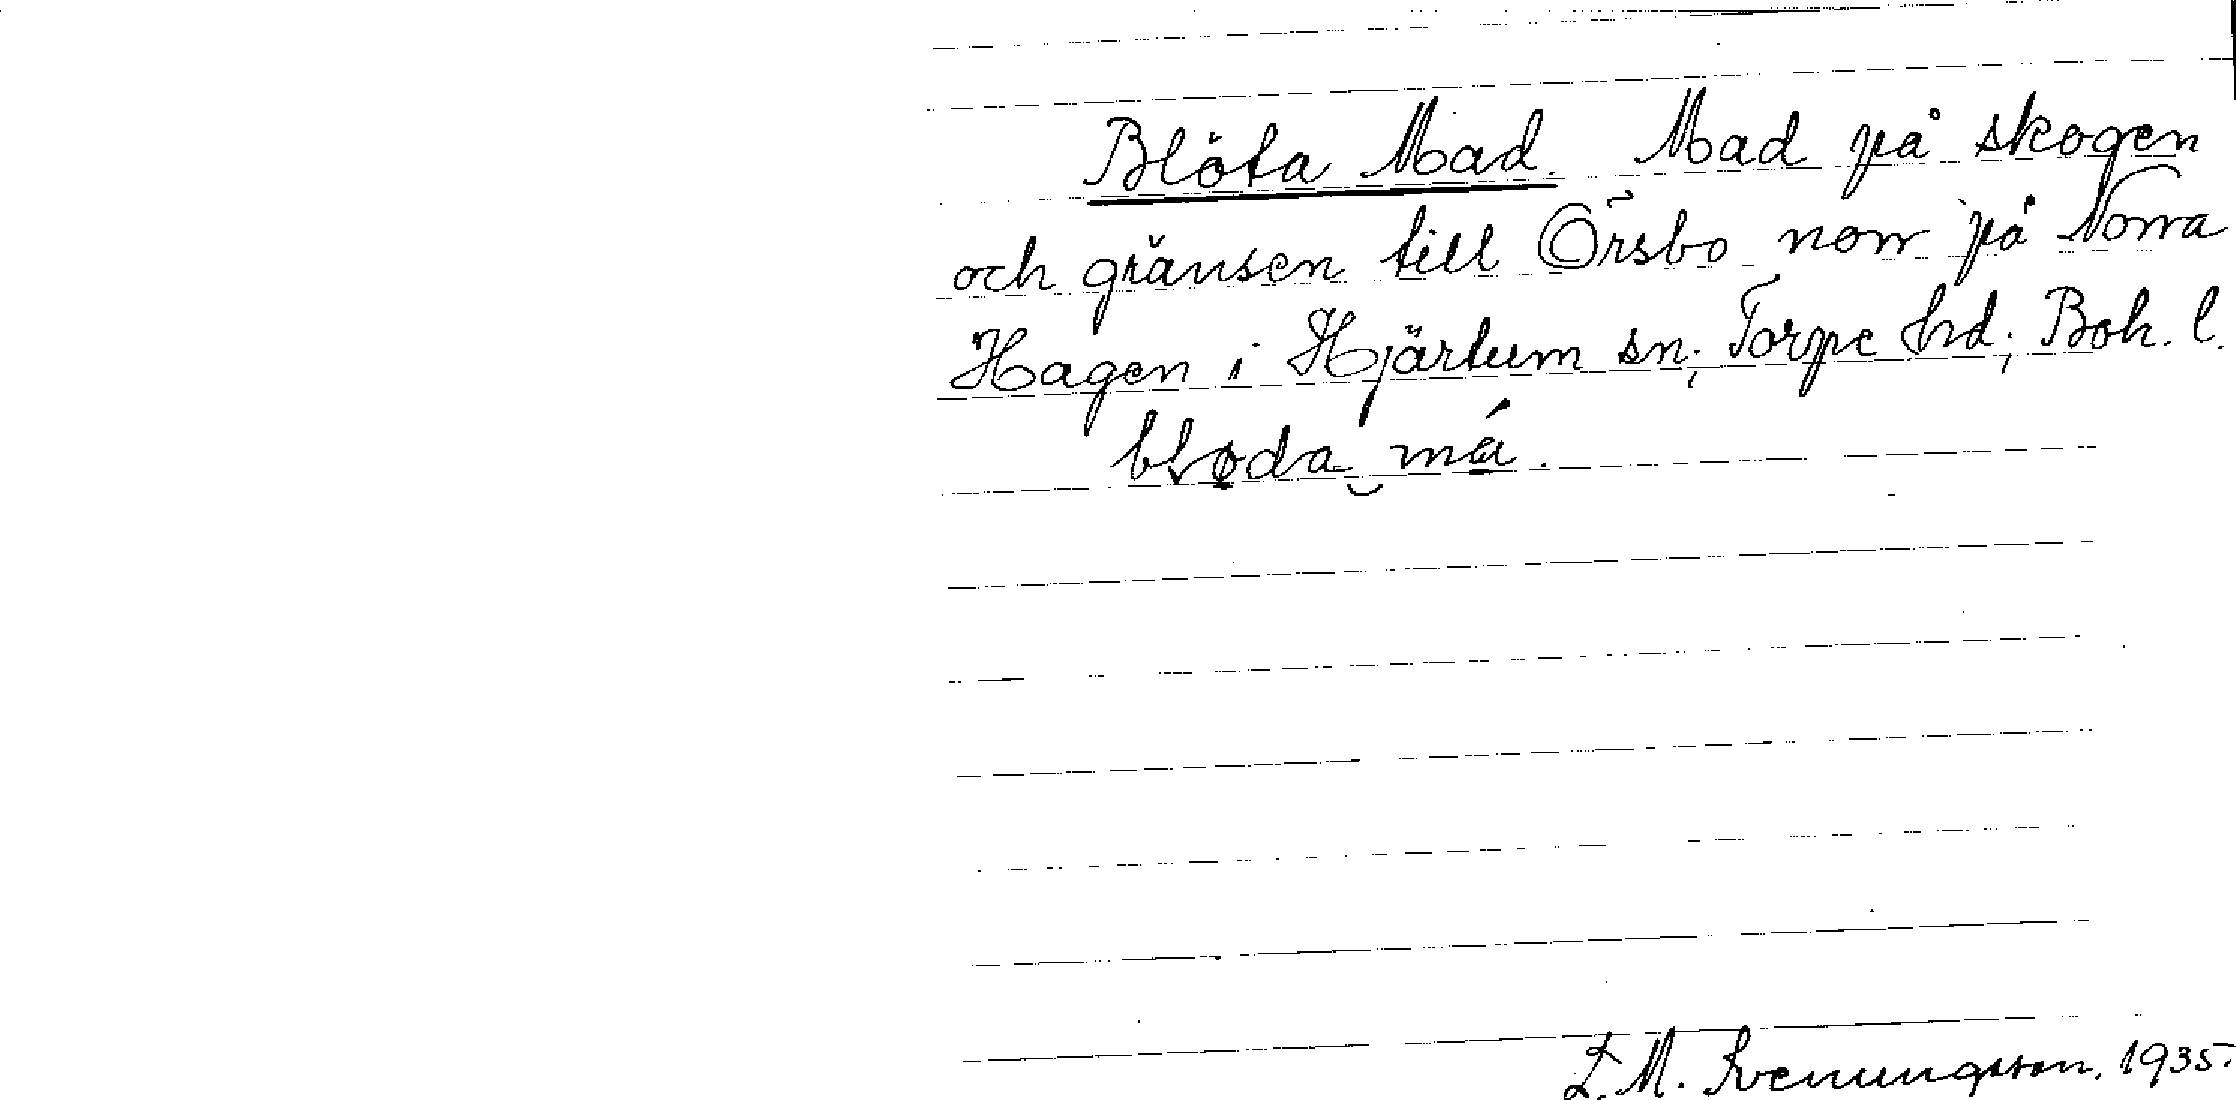 Blöta Mad. Mad på skogen
och gränsen till Örsbo norr på Norra
Hagen i Hjärtum sn; Torpe hd; Boh. l.
bløda má.
L. M. Svenungsson, 1935.